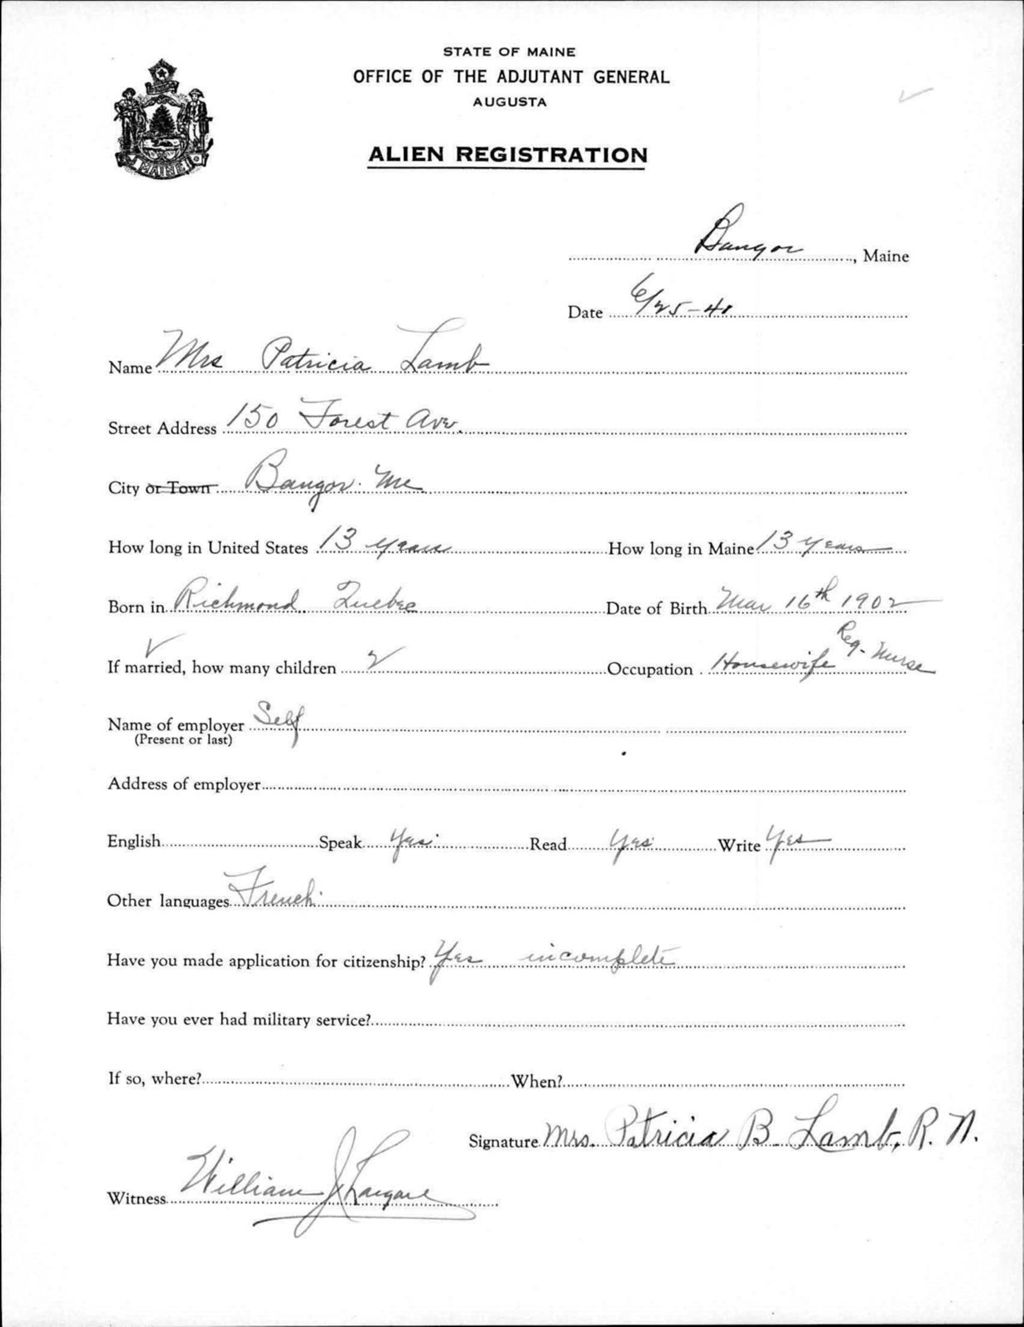 STATE OF MAINE
OFFICE OF THE ADJUTANT GENERAL
AUGUSTA
ALIEN REGISTRATION
MAINE
Bangor, Maine
Date 6/25-40
Name Mrs Patricia Lamb
Street Address 150 Forest Ave.
City or Town Bangor. Me
How long in United States 13 years How long in Maine 13 years
Born in Richmond, Quebec Date of Birth Mar 16th 1902
If married, how many children 2 Occupation Housewife Reg. Nurse
Name of employer Self
(Present or last)
Address of employer
English Speak Yes Read Yes Write Yes
Other languages French
Have you made application for citizenship? Yes incomplete
Have you ever had military service?
If so, where? When?
Signature Mrs. Patricia B. Lamb, R. N.
Witness William J.